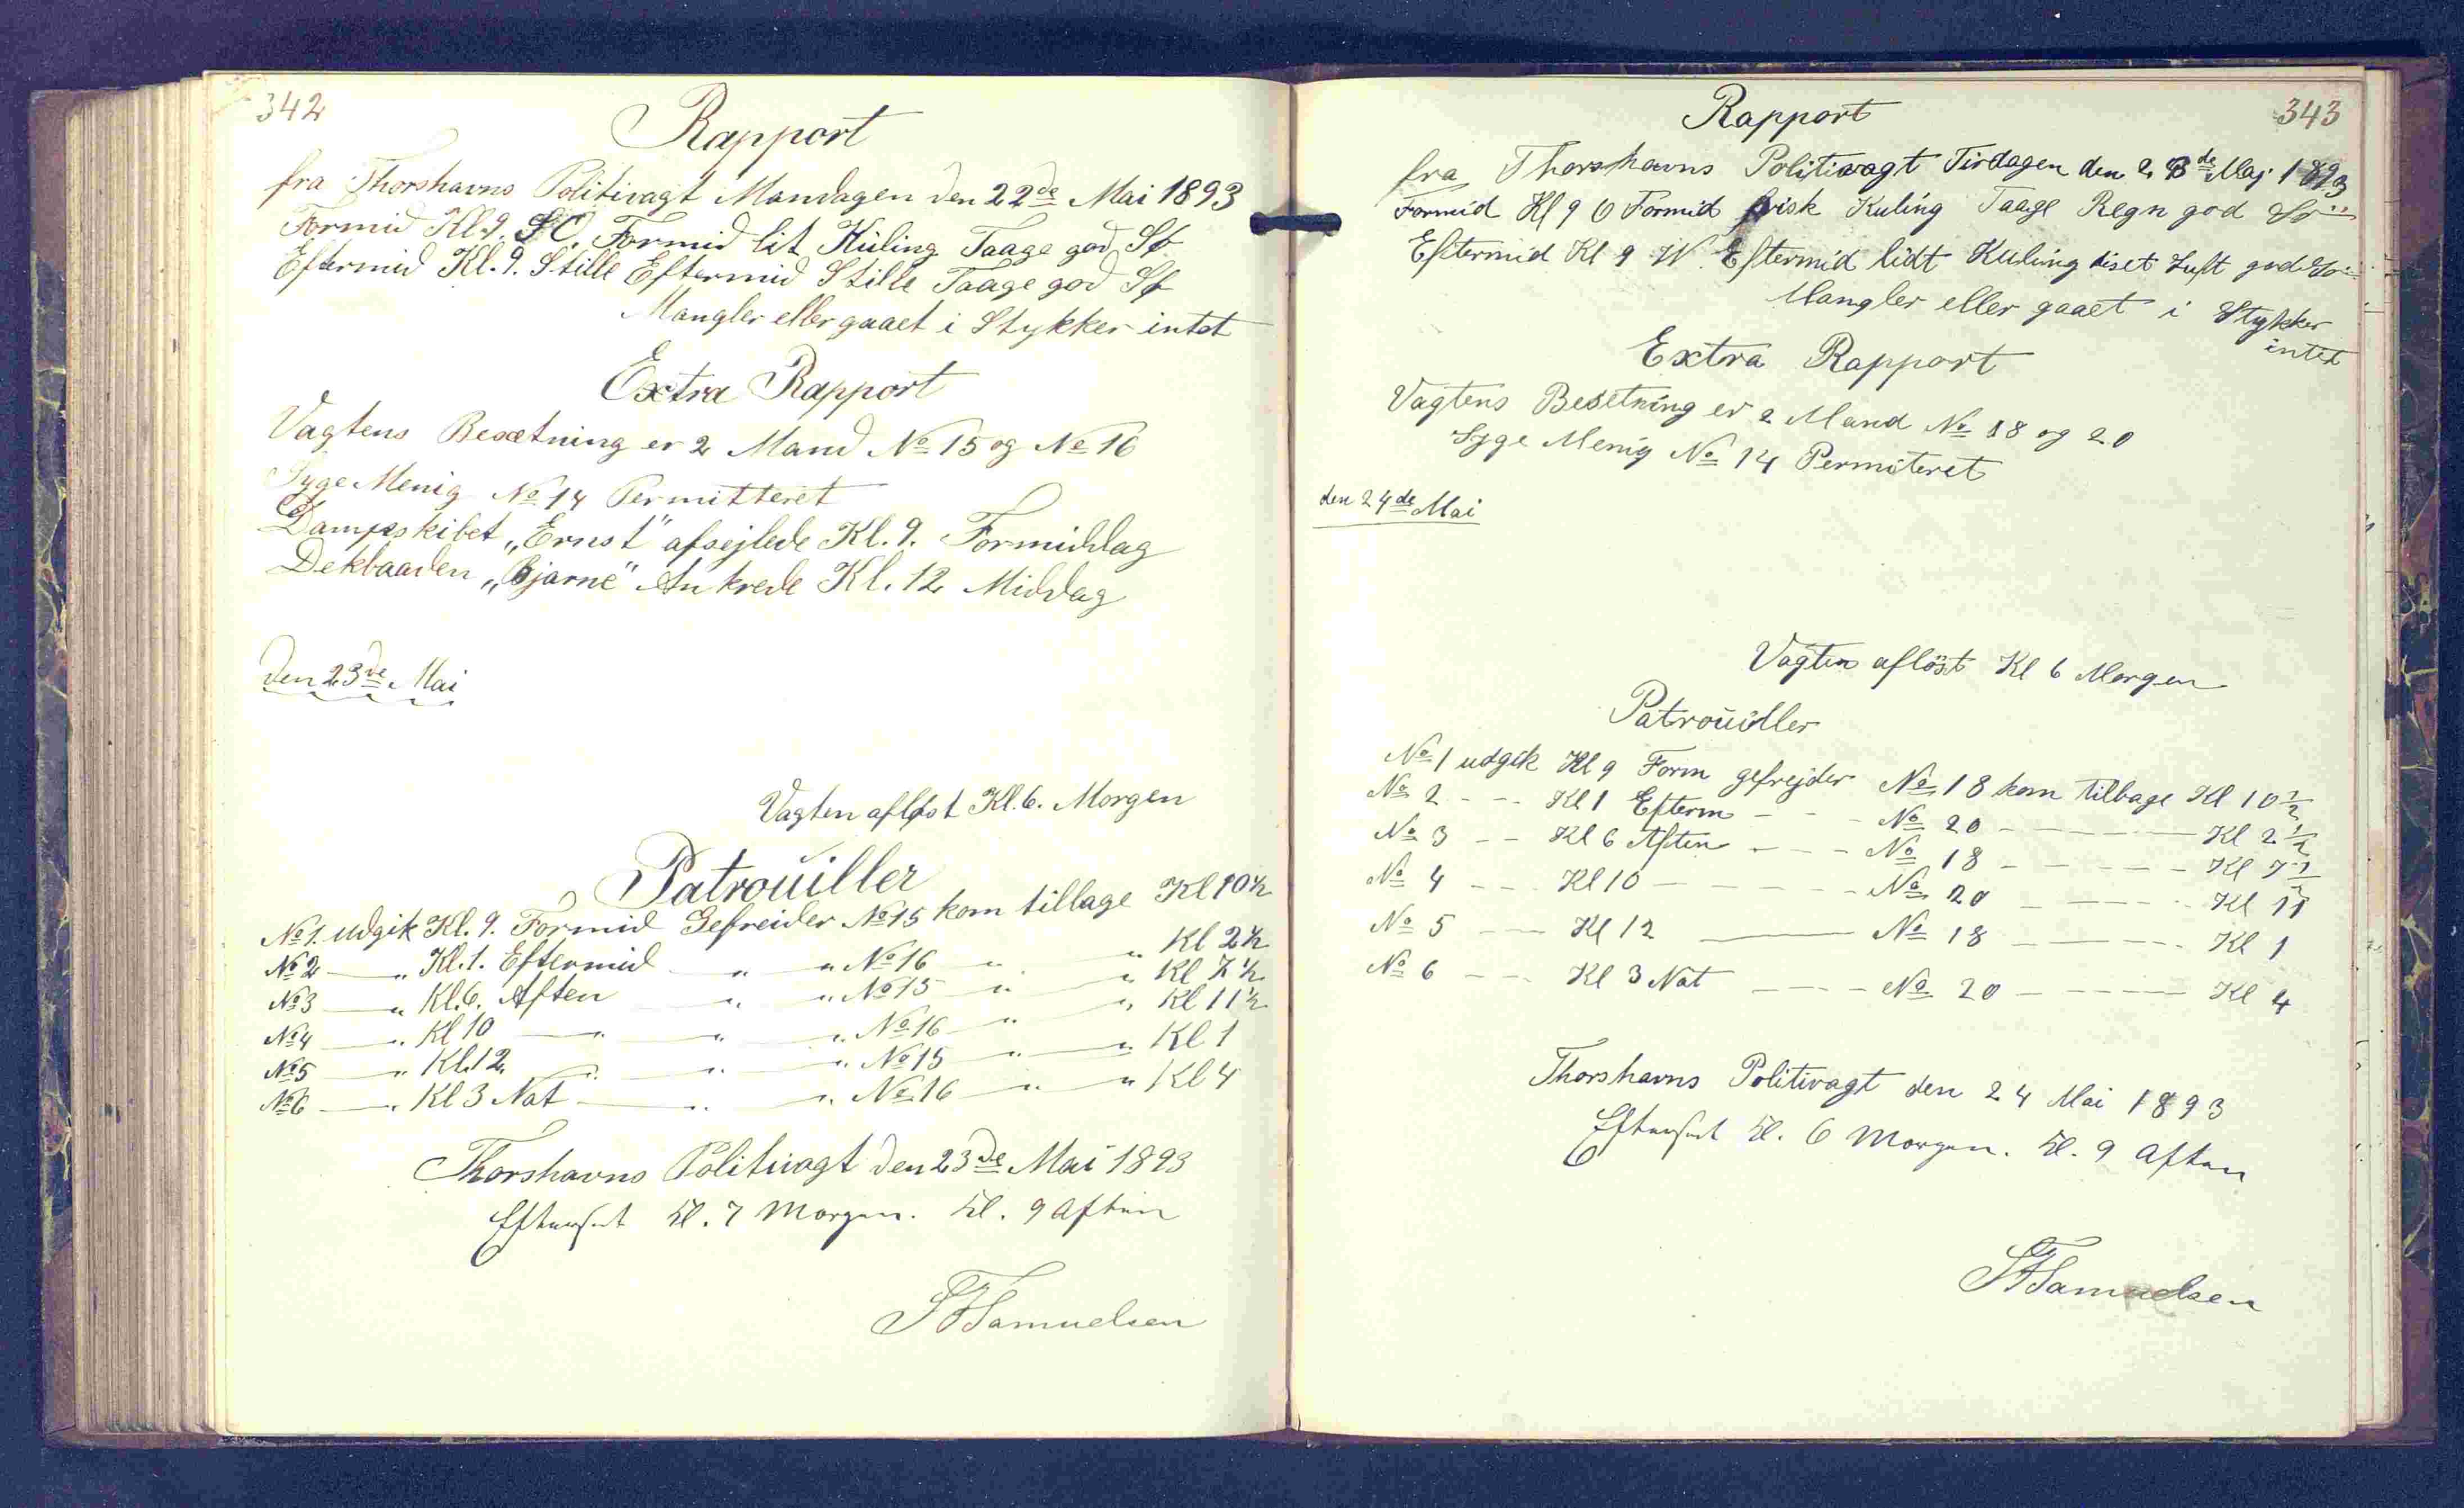 342
Rapport
fra Thorshavns Politivagt Mandagen den 22de Mai 1893
Formid Kl. 9. SO. Formid lit Küling Taage god Sø
Eftermid Kl. 9. Stille Eftermid Stille Taage god Sø
Mangler eller gaaet i Stykker intet
Extra Rapport
Vagtens Besætning er 2 Mand No 15 og No 16
Syge Menig No 14 Permitteret
Dampsskibet „Ernst" afsejlede Kl. 9. Formiddag
Dekbaaden „Bjarne" Ankrede Kl. 12 Middag
den 23de Mai
Vagten afløst Kl. 6. Morgen
Patrouiller
No 1. udgik Kl. 9. Formid Gefreider No 15 kom tillage Kl 10½
No 2 — „ Kl. 1. Eftermid — „ — „ No 16 — „ — „ Kl 2½
No 3 — „ Kl. 6. Aften — „ — „ No 15 — „ — „ Kl 7½
No 4 — „ Kl 10 — „ — „ — „ No 16 — „ — „ Kl 11½
No 5 — „ Kl. 12 — „ — „ — „ No 15 — „ — „ Kl 1
No 6 — „ Kl 3 Nat — „ — „ No 16 — „ — „ Kl 4
Thorshavns Politivagt den 23de Mai 1893
Efterset Kl. 7 Morgen. Kl. 9 Aften
Samuelsen
343
Rapport
fra Thorshavns Politivagt Tirdagen den 23de Maj 1893
Formid Kl 9 O Formid frisk Kuling Taage Regn god Sö
Eftermid Kl 9 W Eftermid lidt Kuling diset Luft god Sö
Mangler eller gaaet i Stykker
intet
Extra Rapport
Vagtens Besetning er 2 Mand No 18 og 20
Syge Menig No 14 Permiteret
den 24de Mai
Vagten aflöst Kl 6 Morgen
Patrouiller
No 1 udgik Kl 9 Form gefrejder No 18 kom tilbage Kl 10½
No 2 - - Kl 1 Efterm - - - No 20 - - - Kl 2½
No 3 - - Kl 6 Aften - - - No 18 - - - - Kl 7½
No 4 - - Kl 10 - - - - - No 20 - - - - Kl 11
No 5 - - Kl 12 — No 18 - - - - Kl 1
No 6 - - Kl 3 Nat - - - No 20 - - - - Kl 4
Thorshavns Politivagt den 24 Mai 1893
Efterset Kl. 6 Morgen. Kl. 9 Aften
Samuelsen